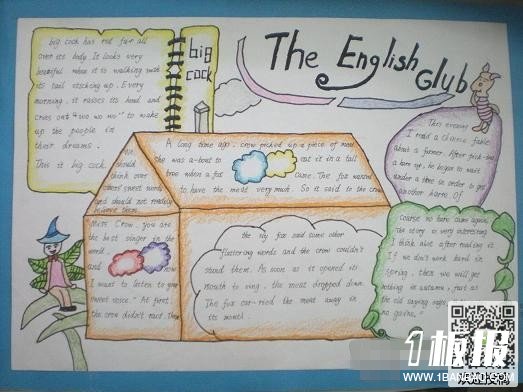 The English Club
big
cock
big cock has red fur all
over its body. It looks very
beautiful when it is walking with
its tail sticking up. Every
morning, it raises its head and
cries out "wo wo wo" to wake
up the people in
their dreams.
This it big cock.
A long time ago, crow picked up a piece of meat
She was a-bout to eat it in a tall
tree when a fox came. The fox wanted
to have the meat very much. So it said to the crow
should
think over
others' sweet words
and should not readily
believe them.
Miss Crow, you are
the best singer in the
world,
and now
I want to listen to your
sweet voice." At first,
the crow didn't ract. then
the sly fox said some other
flattering words and the crow couldn't
stand them. As soon as it opened its
mouth to sing, the meat dropped down
The fox car-ried the meat away in
its mouth.
This evening
I read a Chinese fable
about a farmer. After pick-ing
a hare up, he began to wait
under a tree in order to get
another hare. Of
coarse no hare came again.
The story is very interesting
I think alot after reading it
If we don't work hard in
spring, then we will get
nothing in autumn, just as
the old saying says,
no gains."
1板报
WWW.1BANBAO.COM